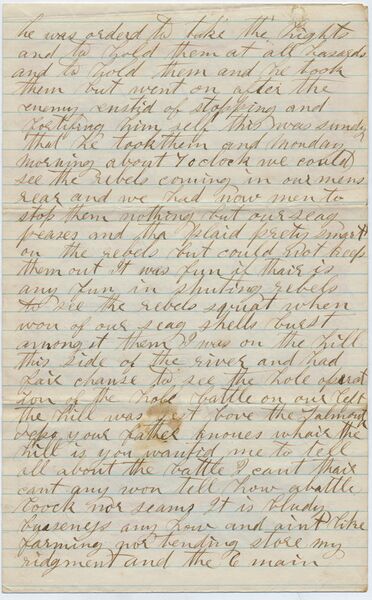 he was orderd to take the hights
and to hold them at all hazards
and to hold them and he took
them but went on after the
enemy enstid of stopping and
fortifing him self this was sunday
that he took them and monday
morning about 7 oclock we could
see the rebels coming in our mens
rear and we had now men to
stop them nothing but our seag
peases and tha plaid pretis smart
on the rebels but could not keep
them out It was fun if thair is
any fun in shuting rebels
to see the rebels squat when
won of our seag shells burst
among it them I was on the hill
this side of the river and had
fair chanse to see the hole oprat
ion of the hole battle on our left
the hill was just bove the Falmouth
your father knoues whair the
hill is you wantid me to tell
all about the battle I cant thair
cant any won tell how a battle
loock nor seams It is bludy
bussenejs any how and aint like
farming nor tending store my
ridgment and the 6 main